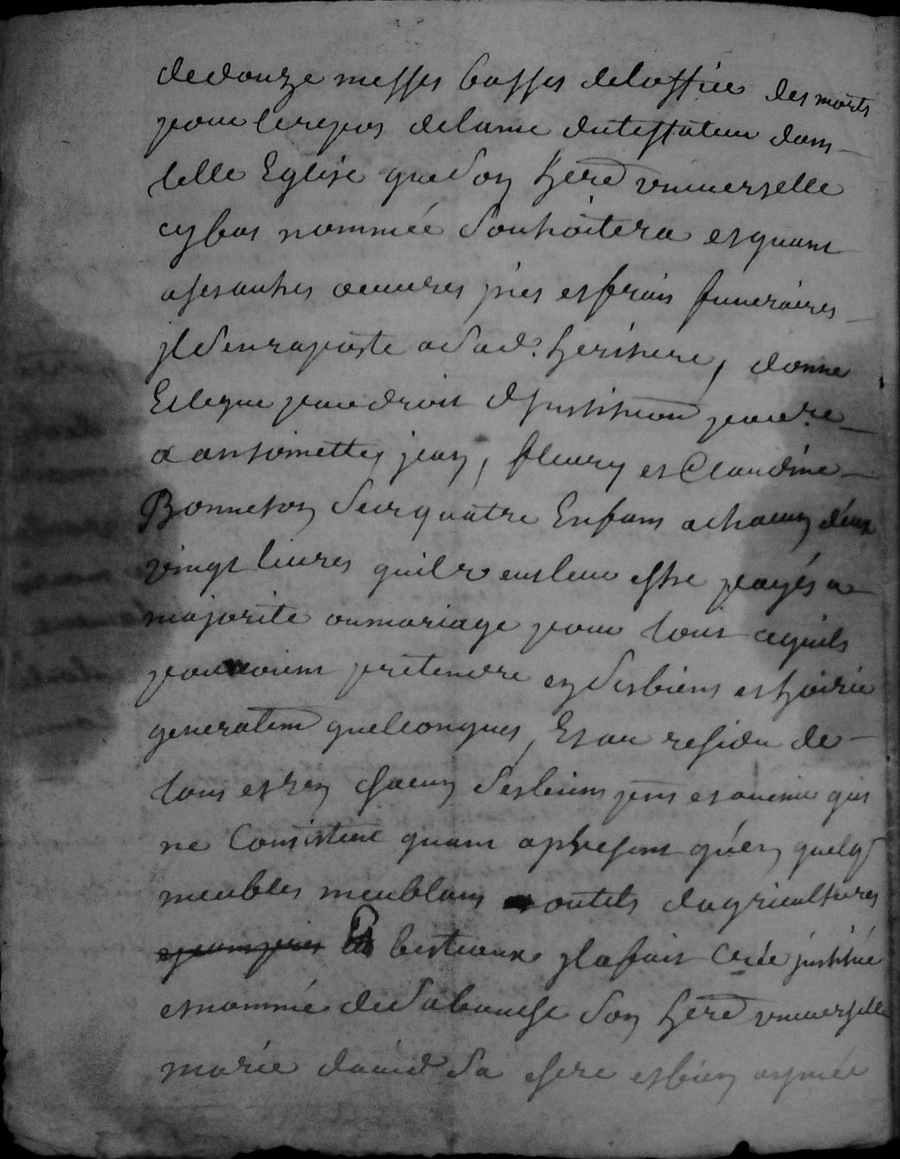 de douze messes basses de loffice des morts
pour le repos de lame du testateur dans
telle Eglise que son here universelle
cy bas nommée Souhaitera et quant
a ses autres oeuvres pies et frais funeraires
jl sen raporte a sad. heritiere, donne
Et legue pour droit d'justitution
a antoinette, jean, fleury et Claudine
Bonneton ses quatre Enfans a chacun d'eux
vingt livres quil veut leur estre payés a
majorité ou mariage pour tout ce quils
pouroient pretendre en ses biens et hoirie
generalem quelconques, Et au residu de
tous et un chacun ses biens pns et avenir qui
ne Consistent quant a present qu'en quelq
meubles meublans outils dagricultures
Et bestiaux jl a fait Créé jnstitué
et nommé de sa bouche son here universelle
marie david sa chere et bien aymée